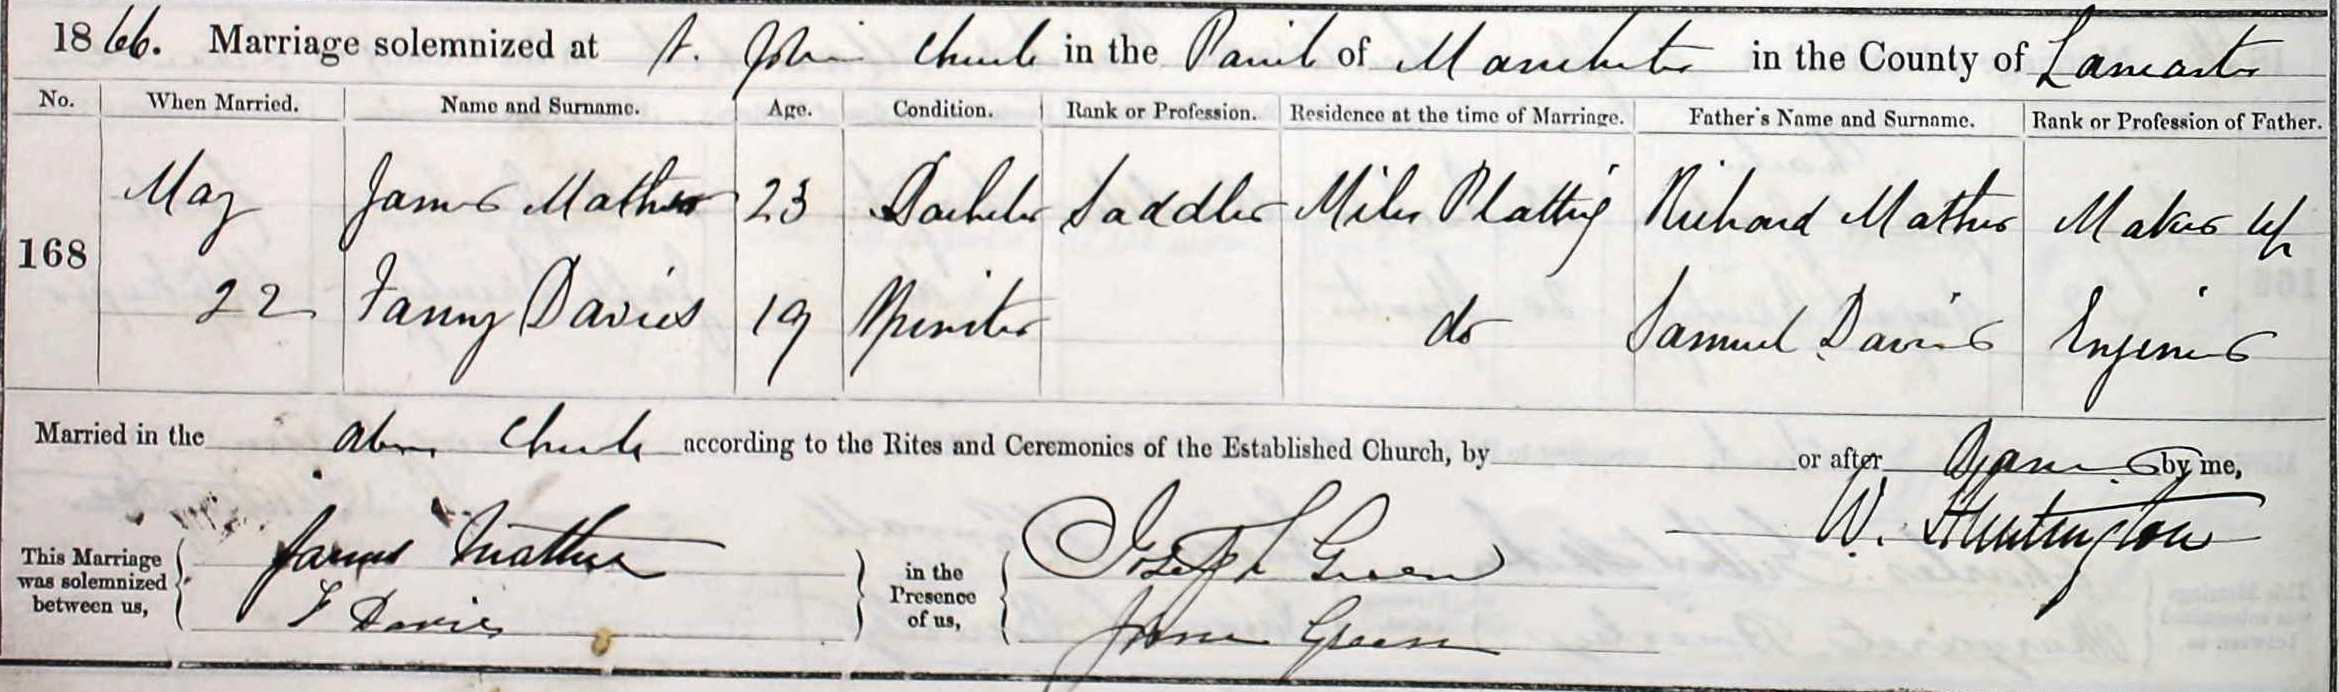 1866. Marriage solemnized at St. John's Church in the Parish of Manchester in the County of Lancaster
No. When Married. Name and Surname. Age. Condition. Rank or Profession. Residence at the time of Marriage. Father's Name and Surname. Rank or Profession of Father.
168 May James Mather 23 Bachelor Saddler Miles Platting Richard Mather Maker Up
22 Fanny Davies 19 Spinster do Samuel Davies Engineer
Married in the above Church according to the Rites and Ceremonies of the Established Church, by or after Banns by me,
W. Huntington
This Marriage was solemnized between us, James Mather
F Davies
in the Presence of us, Joseph Green
Jane Green